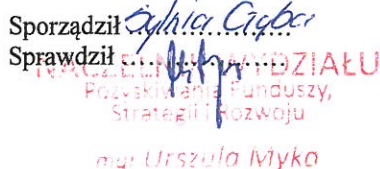 Sporządził Sylwia Ciąba
Sprawdził ....................
NACZELNIK WYDZIAŁU
Pozyskiwania Funduszy,
Strategii i Rozwoju
mgr Urszula Myka